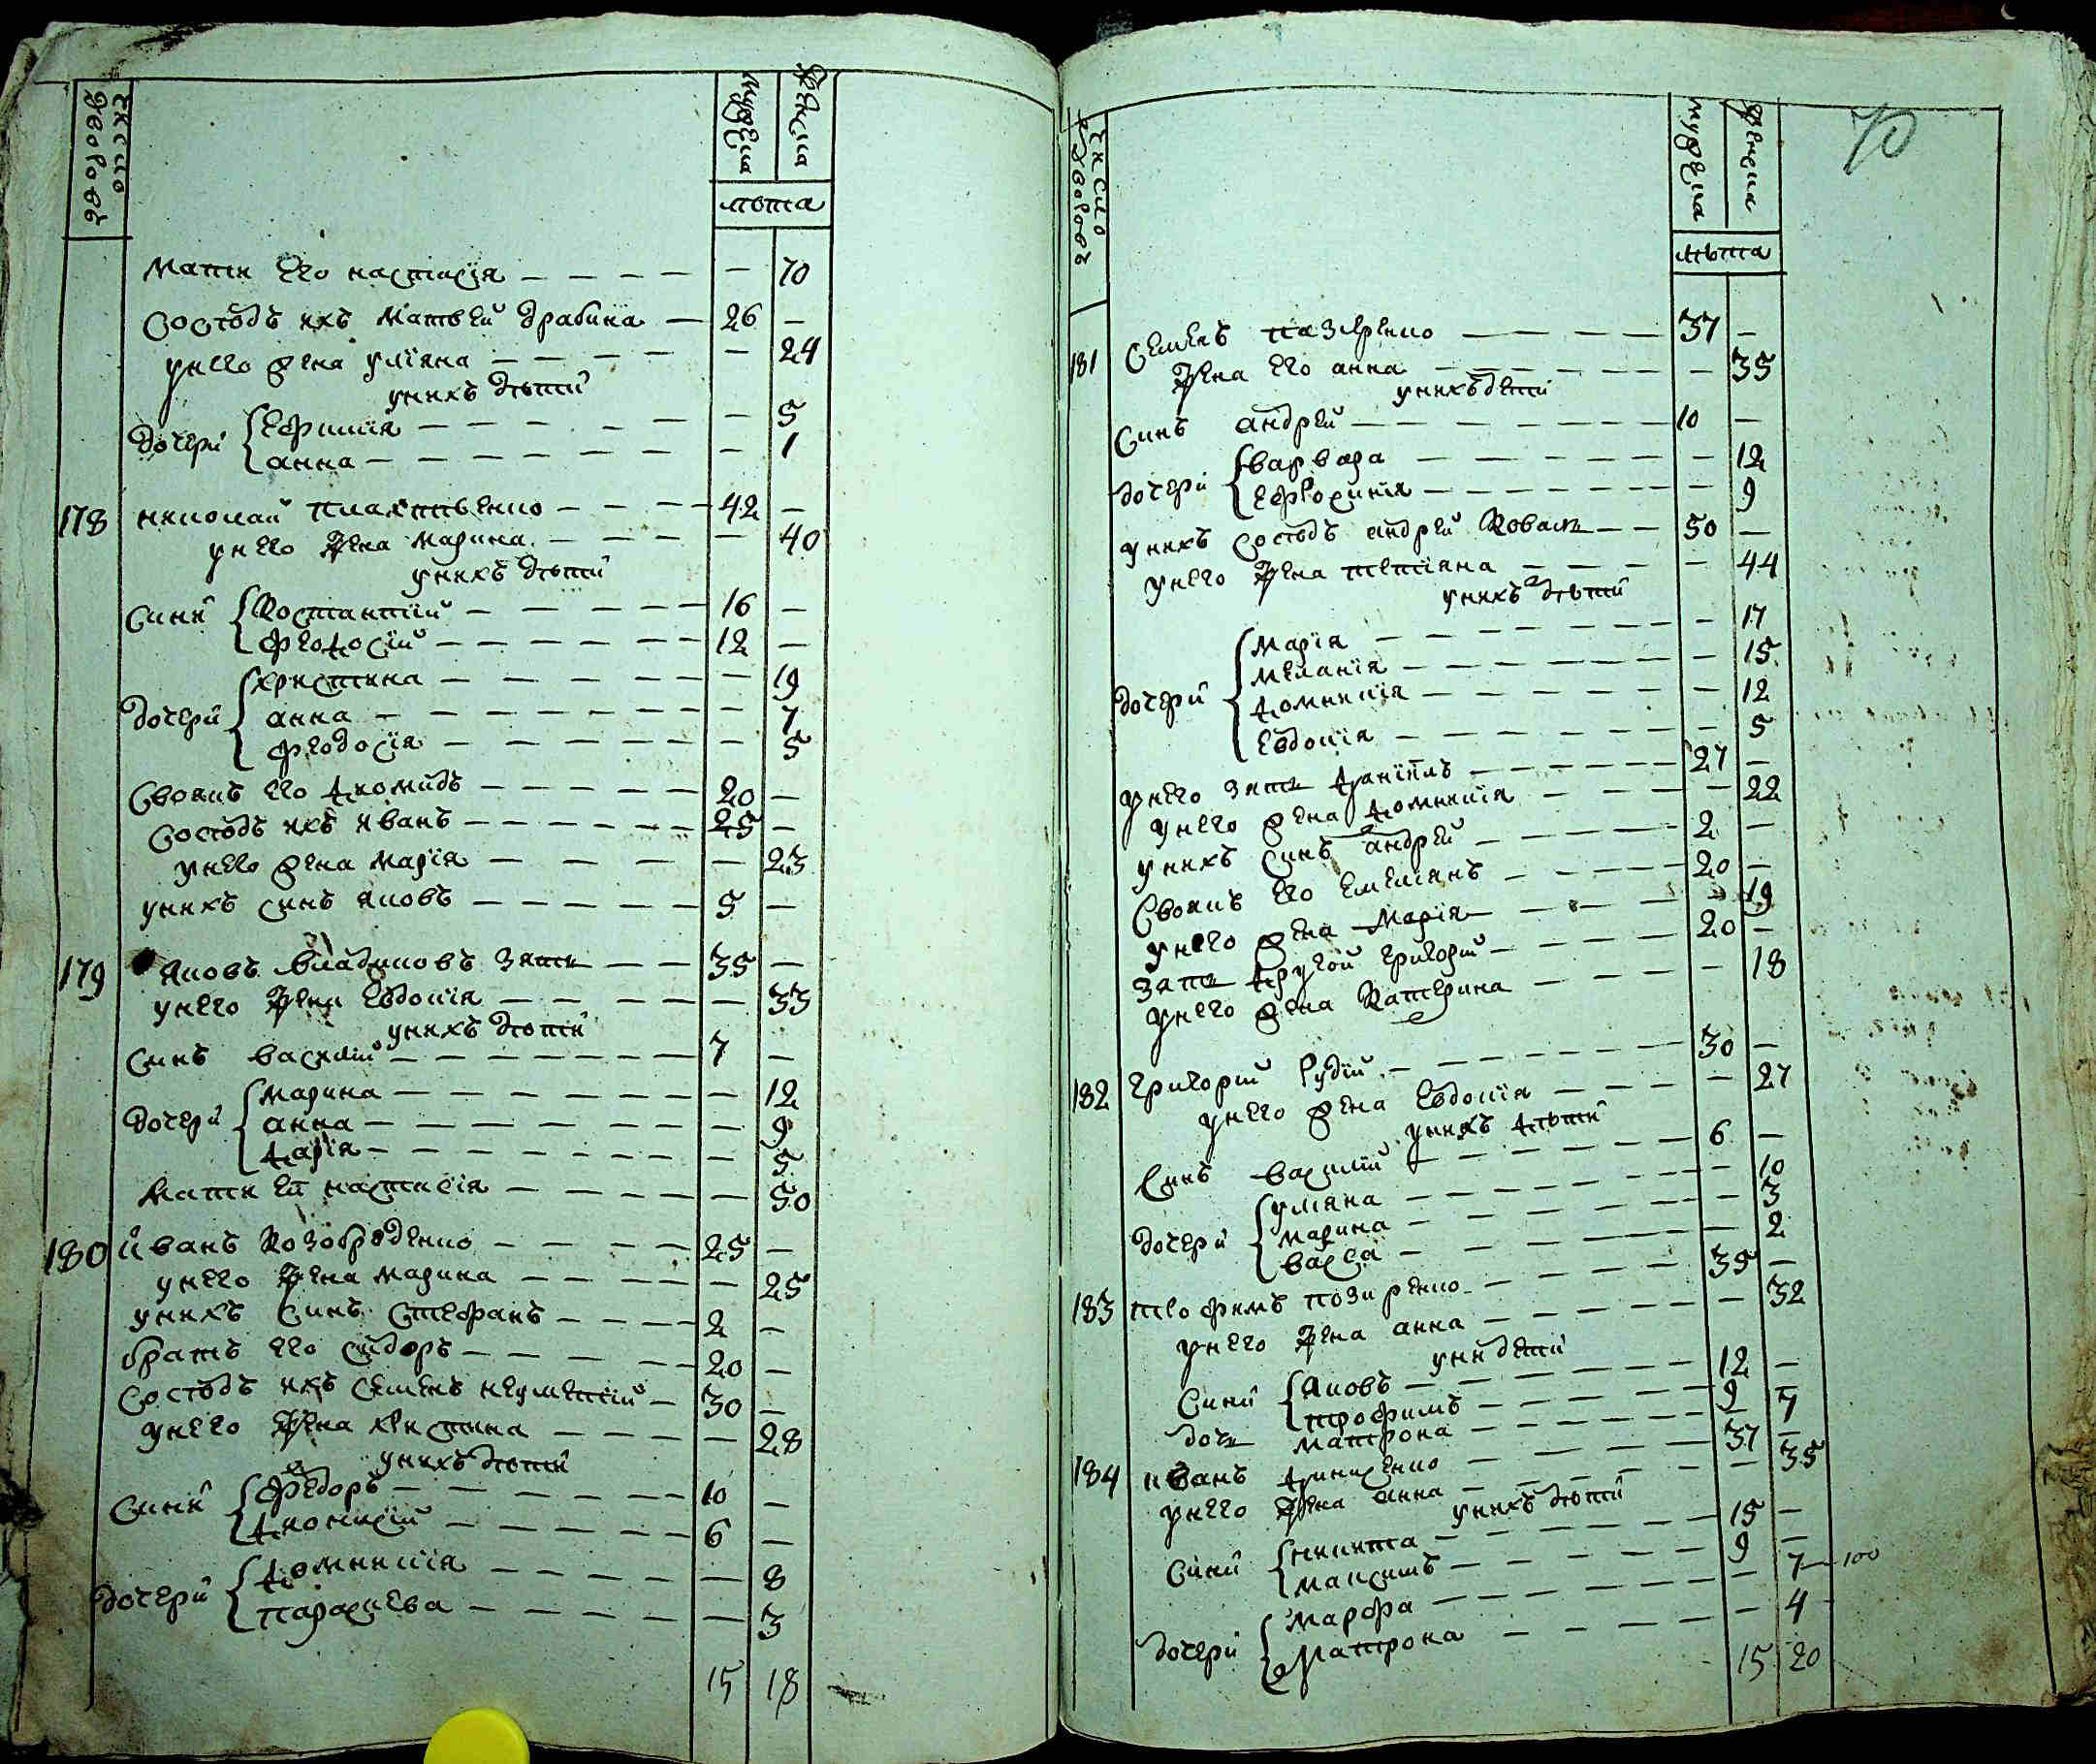 Число дворовъ
Мужеска
Женска
лѣта
Мати его настасїя — — — — — 70
Сосѣдъ ихъ Матвей драбина — 26 —
у него жена улїяна — — — — — 24
у нихъ дѣти
дочери { Ефимия — — — — — — 5
анна — — — — — — — 1
178 николай плахтѣенко — — — 42 —
у него жена Марина — — — — 40
у нихъ дѣти
Сини { Костантїй — — — — — 16 —
Феодосїй — — — — — — 12 —
дочери { христина — — — — — — 19
анна — — — — — — — — 7
феодосїя — — — — — — 5
Своякъ его диомидъ — — — — 20 —
Сосѣдъ ихъ иванъ — — — — — 25 —
у него жена Марїя — — — — — 23
у нихъ синъ яковъ — — — — — 5 —
179 яковъ владиковъ зять — — 35 —
у него жена Евдокїя — — — — — 33
у нихъ дѣти
Синъ василїй — — — — — — — 7 —
дочери { Марина — — — — — — — 12
анна — — — — — — — — 9
дарїя — — — — — — — — 5
Мати ей настасїя — — — — — 50
180 иванъ Козоброденко — — — — 25 —
у него жена Марина — — — — — 25
у нихъ Синъ Стефанъ — — — — 2 —
братъ его сидоръ — — — — — 20 —
Сосѣдъ ихъ Семенъ неуметїй — 30 —
у него жена христина — — — — — 28
у нихъ дѣти
Сини { федоръ — — — — — — — 10 —
дионисїй — — — — — — 6 —
дочери { домникїя — — — — — — 8
параскева — — — — — — 3
15 18
Число дворовъ
Мужеска
Женска
лѣта
70
181 Семенъ пазиренко — — — — 37 —
Жена его анна — — — — — — 35
у нихъ дети
Синъ андрей — — — — — — — 10 —
дочери { варвара — — — — — — 12
Ефросинїя — — — — — — — 9
у нихъ сосѣдъ андрей Коваль — — 50 —
у него жена тетїяна — — — — — 44
у нихъ дѣти
дочери { Марїя — — — — — — — 17
Меланїя — — — — — — — 15
домникїя — — — — — — — 12
Евдокїя — — — — — — — 5
у него зять данїилъ — — — — — 27 —
у него жена домникїя — — — — 22
у нихъ синъ андрей — — — — 2 —
Своякъ его Емелїянъ — — — — 20 —
у него жена Марїя — — — — — 19
зять другой григорїй — — — — 20 —
у него жена Катерина — — — — 18
182 григорїй рудїй — — — — — — 30 —
у него жена Евдокїя — — — — — 27
у нихъ дѣти
Синъ василїй — — — — — — 6 —
дочери { улїяна — — — — — — — 10
марина — — — — — — — 3
васса — — — — — — — 2
183 трофимъ позиренко — — — — 35 —
у него жена анна — — — — — — 32
у ни дети
Сини { Яковъ — — — — — — 12 —
трофимъ — — — — — — 9 —
дочь матрона — — — — — — 7
184 иванъ дринисенко — — — — 37 —
у него жена анна — — — — — — 35
у нихъ дѣти
Сини { никита — — — — — — 15 —
максимъ — — — — — — 9 —
дочери { Марфа — — — — — — — 7 — 100
Матрона — — — — — — 4
15 20